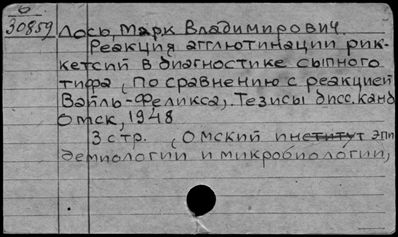 б
30859 Лось, Марк Владимирович.
Реакция агглютинации рик-
кетсий в диагностике сыпного
тифа (по сравнению с реакцией
Вайль-Феликса). Тезисы дисс. канд
Омск, 1948
3 стр. (Омский институт эпи
демиологии и микробиологии,